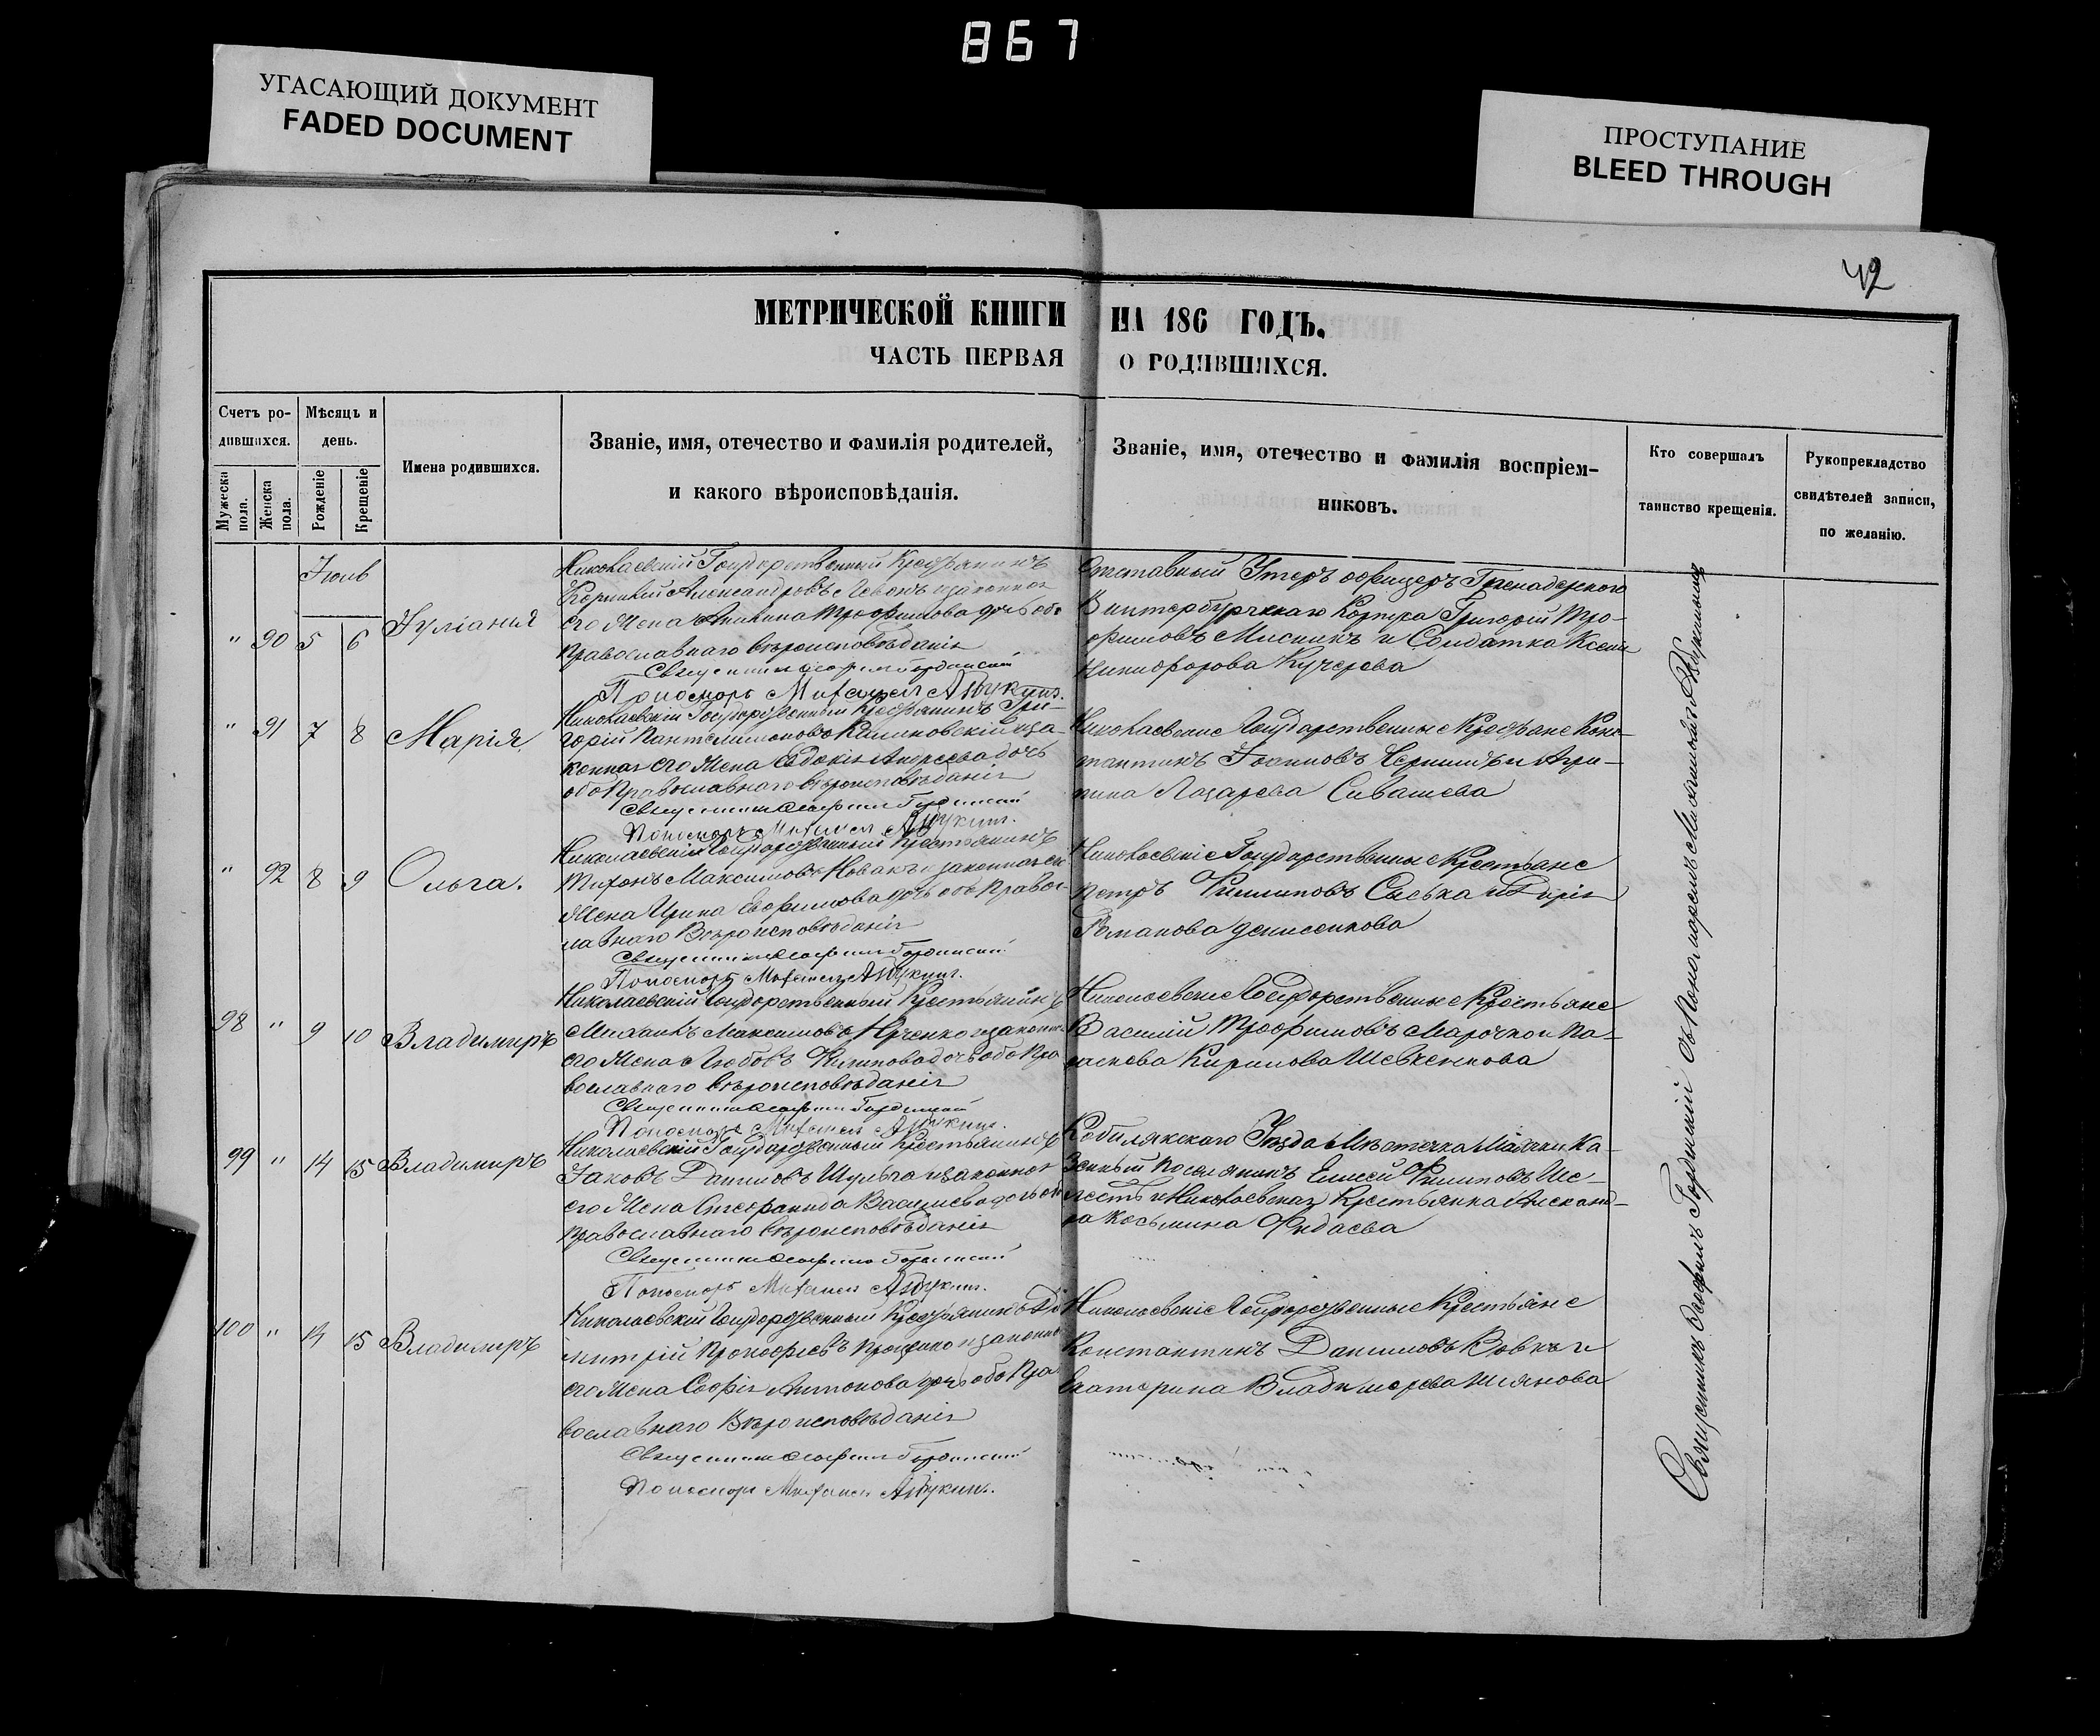 867
УГАСАЮЩИЙ ДОКУМЕНТ
FADED DOCUMENT
ПРОСТУПАНИЕ
BLEED THROUGH
42
МЕТРИЧЕСКОЙ КНИГИ НА 186 ГОДЪ.
ЧАСТЬ ПЕРВАЯ О РОДИВШИХСЯ.
Счетъ ро-
дившихся.
Мужеска пола.
Женска пола.
Мѣсяцъ и
день.
Рожденіе
Крещеніе
Имена родившихся.
Званіе, имя, отечество и фамилія родителей,
и какого вѣроисповѣданія.
Званіе, имя, отечество и фамилія воспріем-
никовъ.
Кто совершалъ
таинство крещенія.
Рукоприкладство
свидѣтелей записи,
по желанію.
Іюнь
" 90 5 6 Іуліанія
Николаевскій Государственный Крестьянинъ
Александровъ и законная
его Жена Трофимова дочь оба
Православнаго вѣроисповѣданія
Священникъ Ѳеофилъ
Пономарь Михаилъ
Отставный Унтеръ офицеръ Гренадерскаго
Корпуса Григорій Тро-
фимовъ и Солдатка Ксенія
Никифорова Кучерова
" 91 7 8 Марія
Николаевскій Государственный Крестьянинъ Гри-
горій Пантелимоновъ и за-
конная его Жена Евдокія Андреева дочь
оба Православнаго вѣроисповѣданія
Священникъ Ѳеофилъ
Пономарь Михаилъ
Николаевскіе Государственные Крестьяне Конс-
тантинъ Іоанновъ и Агри-
пина Лазарева Сивашева
" 92 8 9 Ольга.
Николаевскій Государственный Крестьянинъ
Тихонъ Максимовъ Новакъ и законная его
Жена Ирина Евфимова дочь оба Правос-
лавнаго Вѣроисповѣданія
Священникъ Ѳеофилъ
Пономарь Михаилъ
Николаевскіе Государственные Крестьяне
Петръ Филиповъ и Дарія
Романова Денисенкова
98 " 9 10 Владимиръ
Николаевскій Государственный Крестьянинъ
Михаилъ Максимовъ и законная
его Жена Любовь Филипова дочь оба Пра-
вославнаго вѣроисповѣданія
Священникъ Ѳеофилъ
Пономарь Михаилъ
Николаевскіе Государственные Крестьяне
Василій Трофимовъ Марочко и Па-
раскева Кирилова Шевченкова
99 " 14 15 Владимиръ
Николаевскій Государственный Крестьянинъ
Іаковъ Даниловъ Шульга и законная
его Жена Стефанида Василиева дочь оба
Православнаго вѣроисповѣданія
Священникъ Ѳеофилъ
Пономарь Михаилъ
Кобилякскаго Уѣзда Мѣстечка Маячки Ка-
зенный поселянинъ Елисей Филиповъ Ше-
лестъ и Николаевская Крестьянка Александ-
ра Косьмина
100 " 14 15 Владимиръ
Николаевскій Государственный Крестьянинъ Ди-
митрій Прокофіевъ и законная
его Жена Софія Антонова дочь оба Пра-
вославнаго Вѣроисповѣданія
Священникъ Ѳеофилъ
Пономарь Михаилъ
Николаевскіе Государственные Крестьяне
Константинъ Даниловъ Вовкъ и
Екатерина Владимирова
Священникъ Ѳеофилъ съ Пономаремъ Михаиломъ